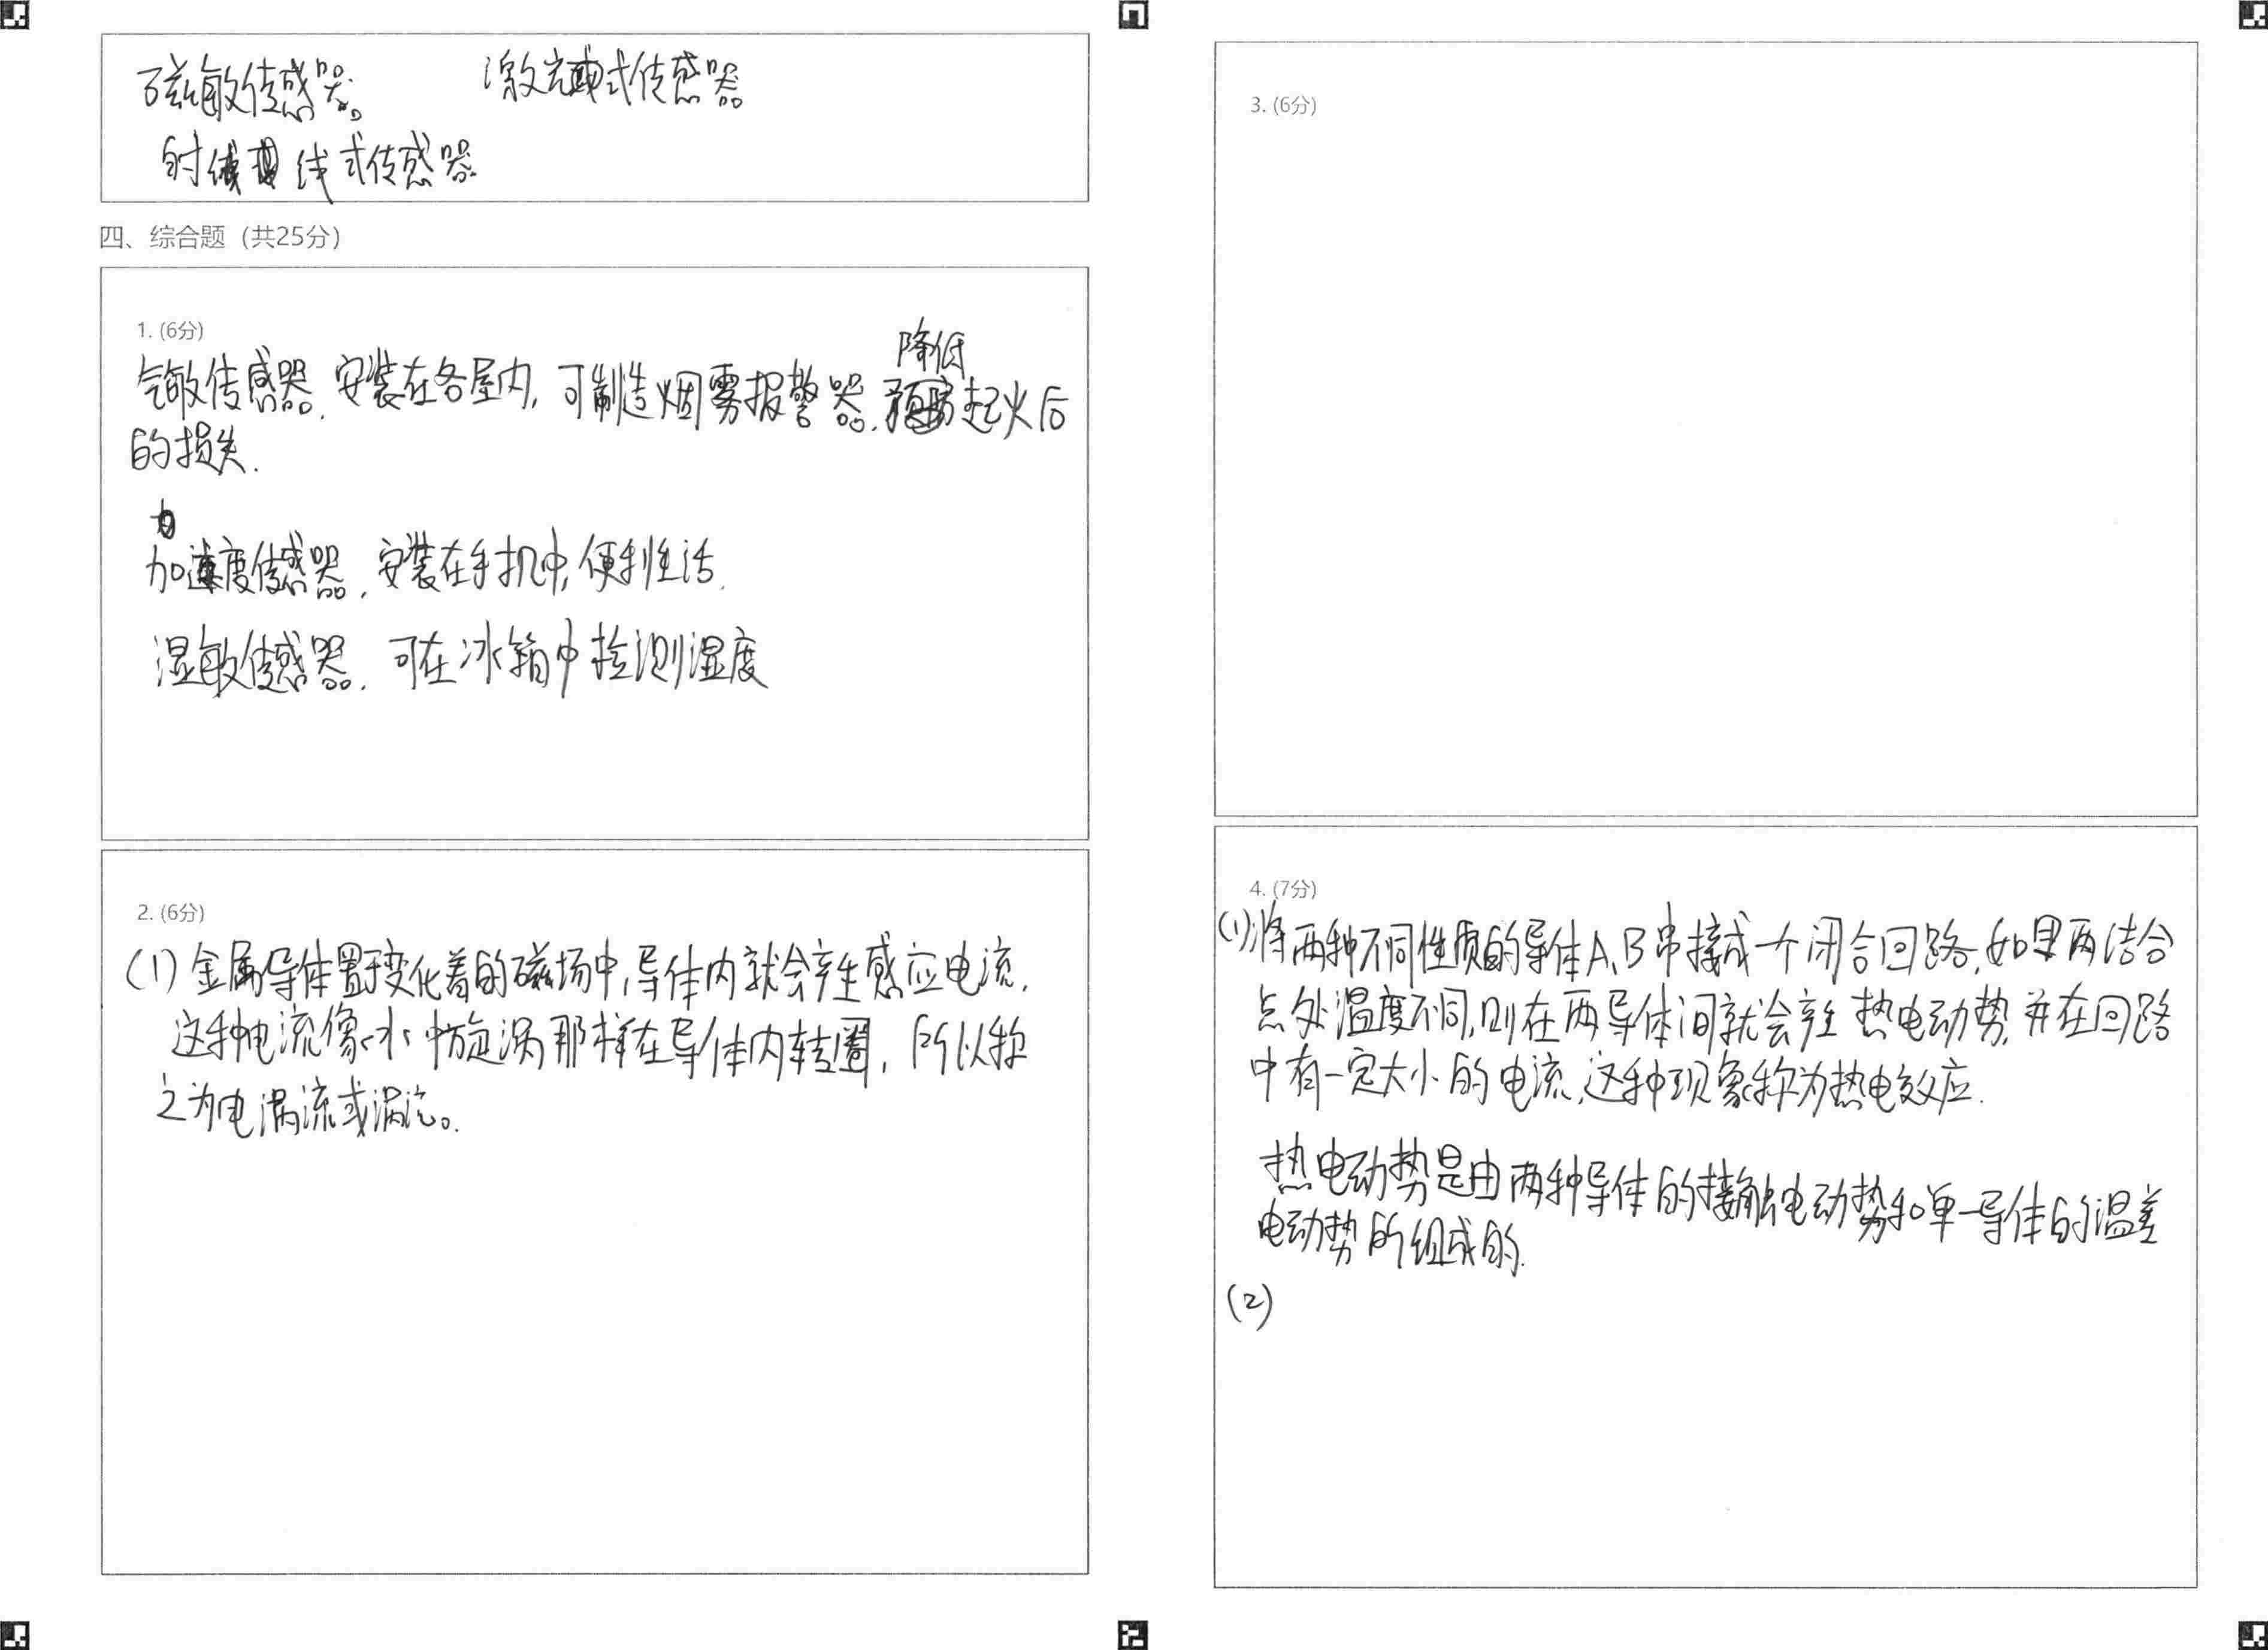 磁敏传感器。 激光式传感器
射线式传感器
四、综合题（共25分）
1. (6分)
降低
气敏传感器，安装在各屋内，可制造烟雾报警器，起火后
的损失.
加速度传感器，安装在手机中，便利生活.
湿敏传感器，可在冰箱中检测湿度
2. (6分)
(1) 金属导体置于变化着的磁场中，导体内就会产生感应电流，
这种电流像水中旋涡那样在导体内转圈，所以称
之为电涡流或涡流。
3. (6分)
4. (7分)
(1)将两种不同性质的导体A、B串接成一个闭合回路，如果两结合
点处温度不同，则在两导体间就会产生热电动势，并在回路
中有一定大小的电流，这种现象称为热电效应.
热电动势是由两种导体的接触电动势和单一导体的温差
电动势所组成的.
(2)